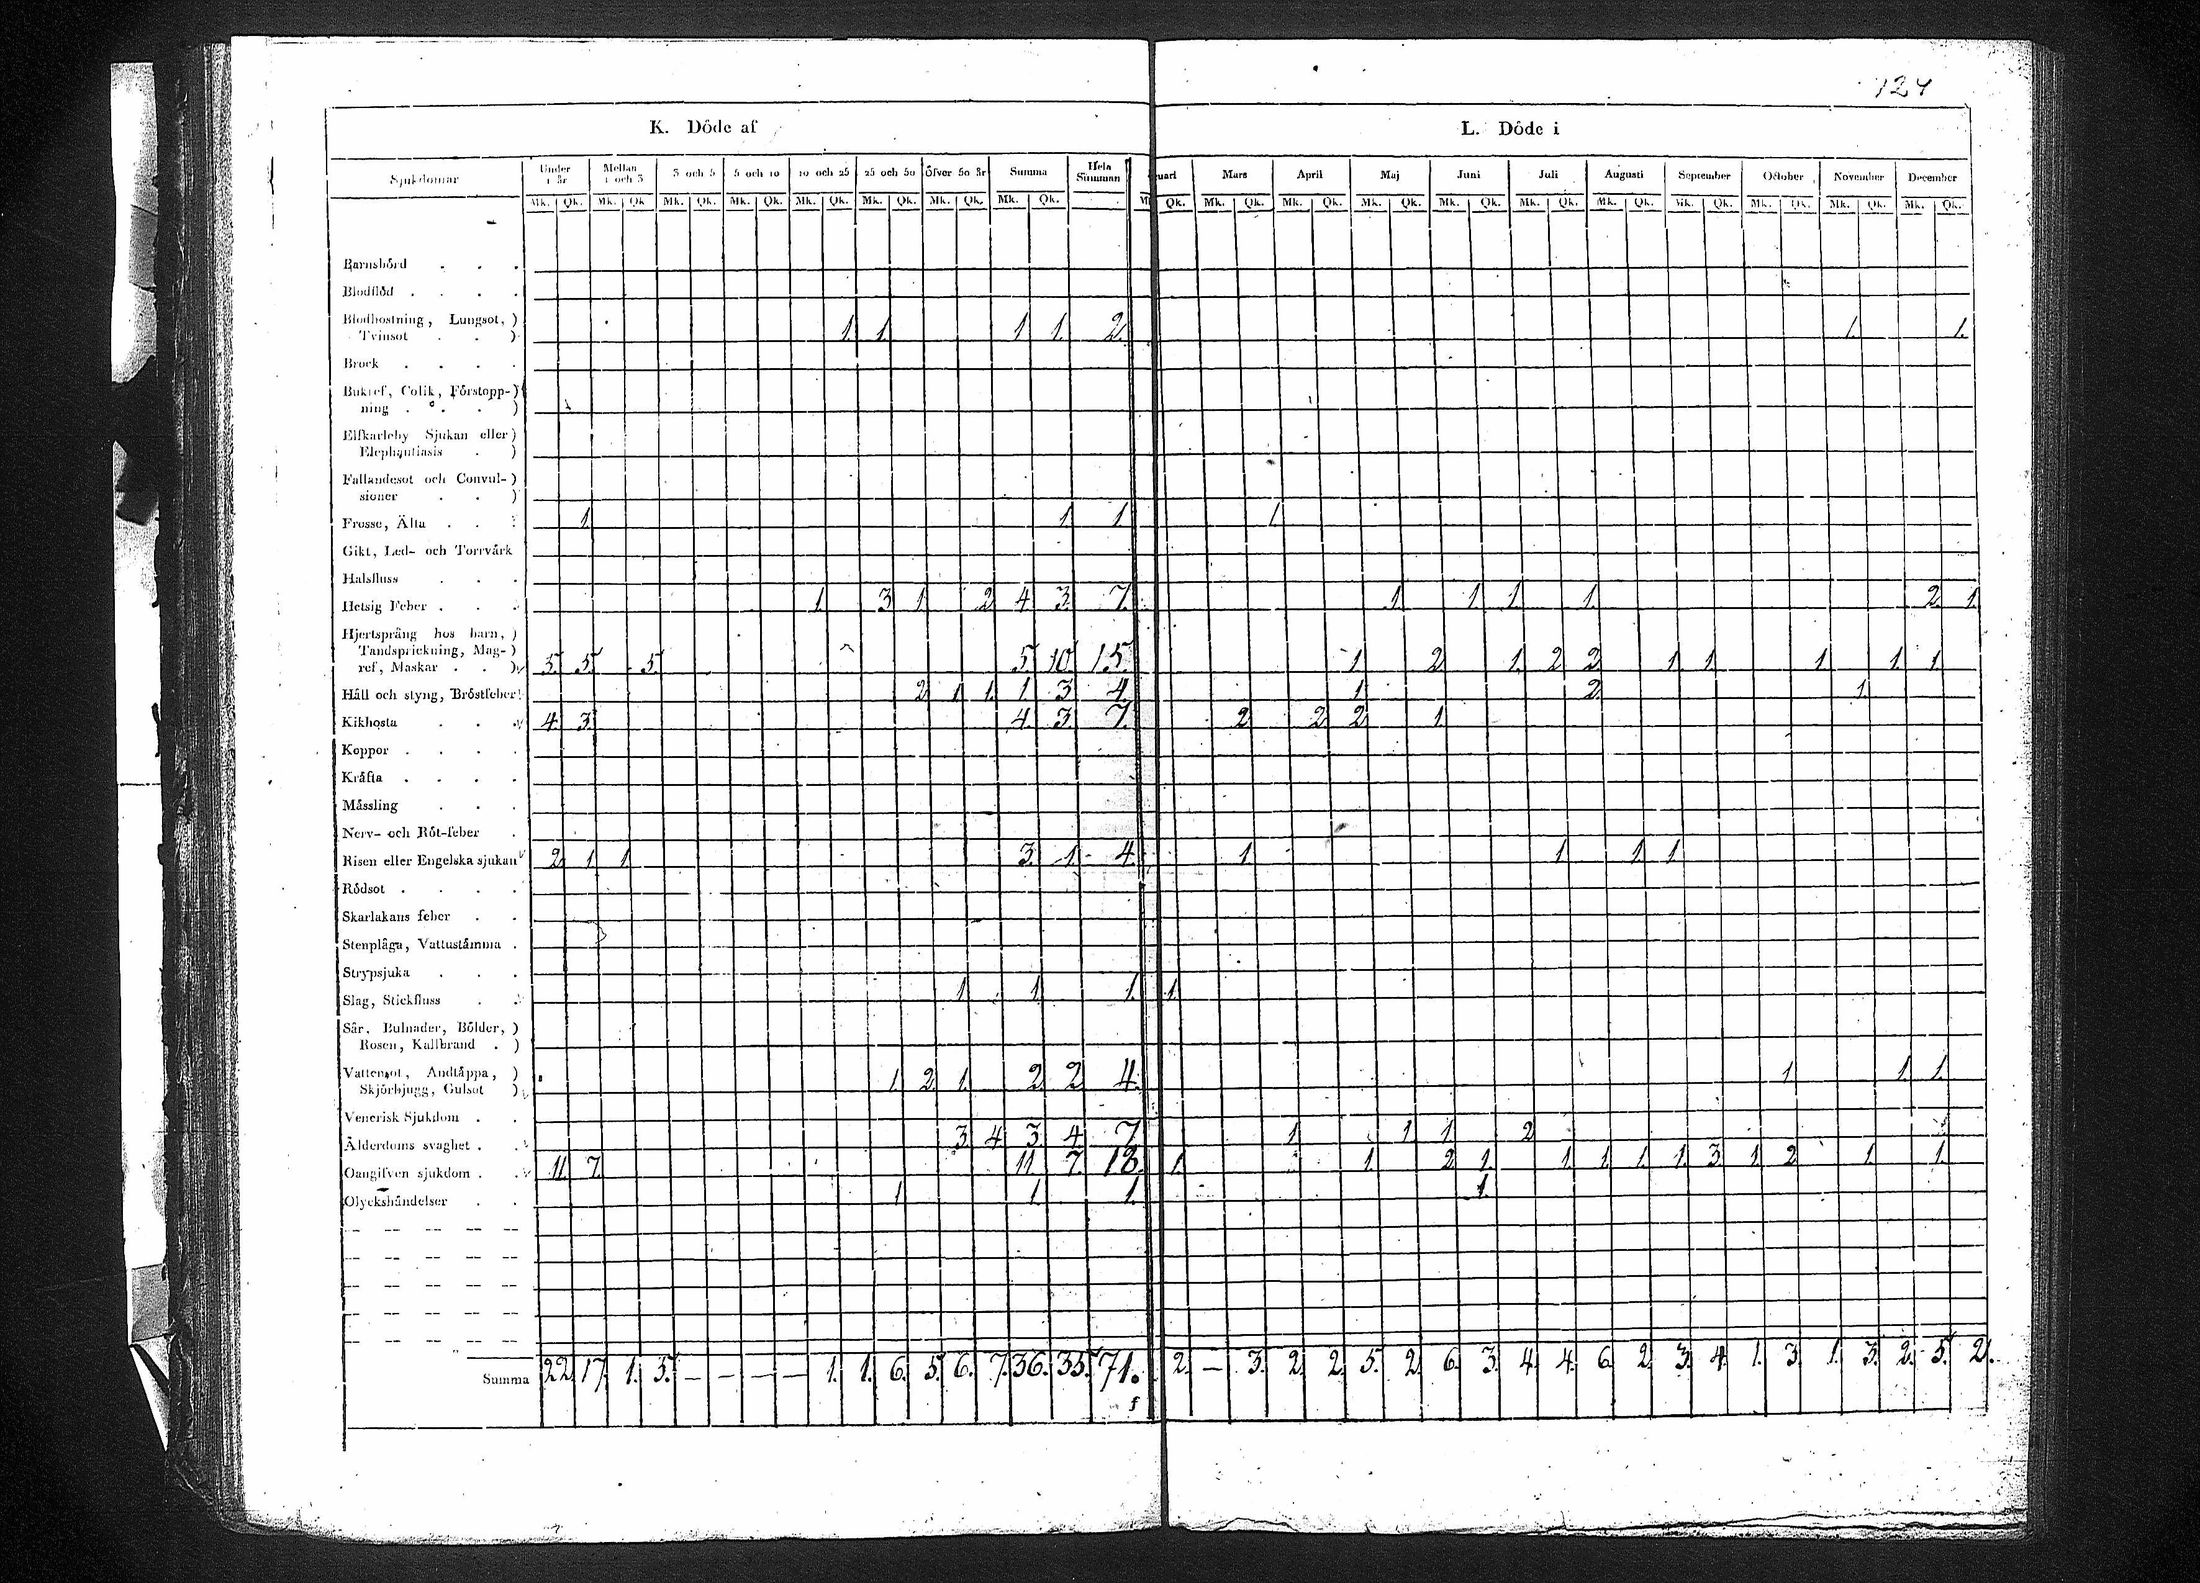 124
K. Döde af
L. Döde i
Sjukdomar Under 1 år Mellan 1 och 3 3 och 5 5 och 10 10 och 25 25 och 50 Öfver 50 år Summa Hela Summan
uari Mars April Maj Juni Juli Augusti September October November December
Mk. Qk. Mk. Qk Mk. Qk. Mk. Qk. Mk. Qk. Mk. Qk. Mk. Qk. Mk. Qk.
Qk. Mk. Qk. Mk. Qk. Mk. Qk. Mk. Qk. Mk. Qk. Mk. Qk. Mk. Qk. Mk. Qk. Mk. Qk. Mk. Qk.
Barnsbörd . . .
Blodflöd . . . .
Blodhostning, Lungsot, )
Tvinsot . . ) 1. 1. 1 1. 2. 1. 1.
Brock . . . .
Bukref, Colik, Förstopp- )
ning . . . )
Elfkarleby Sjukan eller )
Elephantiasis . )
Fallandesot och Convul- )
sioner . . )
Frosse, Älta . . . 1. 1. 1. 1.
Gikt, Led- och Torrvärk
Halsfluss . . .
Hetsig Feber . . . 1. 3. 1. 2. 4. 3. 7. 1. 1. 1. 1. 2. 1.
Hjertsprång hos barn, )
Tandsprickning, Mag- )
ref, Maskar . . ) 5. 5. 5. 5. 10. 15. 1. 2. 1. 2. 2. 1. 1. 1. 1. 1.
Håll och styng, Bröstfeber 2. 1. 1. 1. 3. 4. 1. 2. 1.
Kikhosta . . . 4. 3. 4. 3. 7. 2. 2. 2. 1.
Koppor . . . .
Kräfta . . . .
Mässling . . .
Nerv- och Röt-feber .
Risen eller Engelska sjukan 2. 1. 1. 3. 1. 4. 1. 1. 1. 1.
Rödsot . . . .
Skarlakans feber . .
Stenplåga, Vattustämma .
Strypsjuka . . .
Slag, Stickfluss . . 1. 1. 1. 1.
Sår, Bulnader, Bölder, )
Rosen, Kallbrand . )
Vattensot, Andtäppa, )
Skjörbjugg, Gulsot ) 1. 2. 1. 2. 2. 4. 1. 1. 1.
Venerisk Sjukdom . .
Ålderdoms svaghet . . 3. 4. 3. 4. 7. 1. 1. 1. 2. 1.
Oangifven sjukdom . . 11. 7. 11. 7. 18. 1. 1. 2. 1. 1. 1. 1. 1. 3. 1. 2. 1. 1.
Olyckshändelser . . 1. 1. 1. 1.
Summa 22. 17. 1. 5. — — — — 1. 1. 6. 5. 6. 7. 36. 35. 71. 2. — 3. 2. 2. 5. 2. 6. 3. 4. 4. 6. 2. 3. 4. 1. 3. 1. 3. 2. 5. 2.